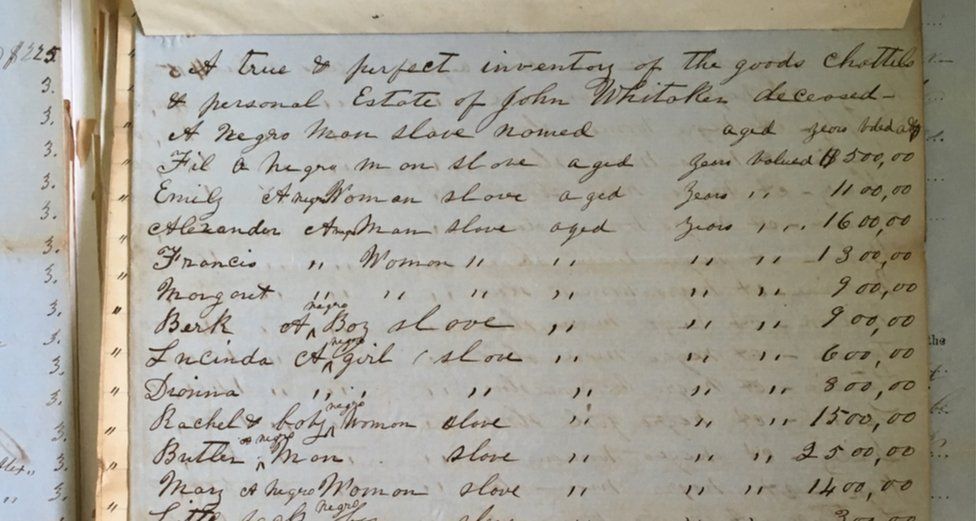 $225
A true & perfect inventory of the goods chattels
& personal Estate of John Whitaker deceased -
A negro man slave named aged years valed at
Fil a negro man slave aged years valued $ 500,00
Emily A negro Woman slave aged years " " 1100,00
Alexander A negro Man slave aged years " " 1600,00
Francis " Woman " " " " 1300,00
Margaret " " " " " " 900,00
Berk A negro Boy slave " " " 900,00
Lucinda A negro girl slave " " " 600,00
Dionna " " " " " " 800,00
Rachel & baby negro Woman slave " " " 1500,00
Butler a negro Man slave " " " 2500,00
Mary A negro Woman slave " " " 1400,00
negro